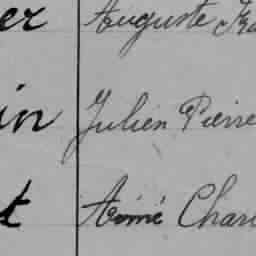 er Auguste
in Julien Pierre
t Aimé Char